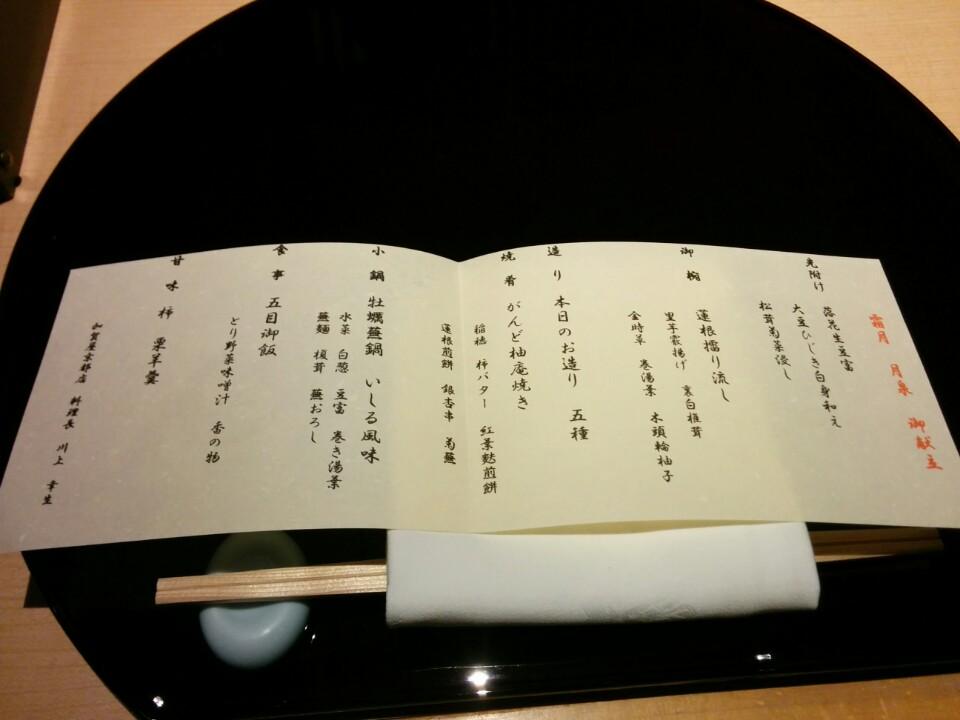 霜月 月泉 御献立
先附け 落花生豆富
大豆ひじき白身和え
松茸菊菜浸し
御椀 蓮根擂り流し
里芋霰揚げ 裏白椎茸
金時草 巻湯葉 木頭輪柚子
造り 本日のお造り 五種
焼肴 がんど柚庵焼き
稲穂 柿バター 紅葉麩煎餅
蓮根煎餅 銀杏串 菊蕪
小鍋 牡蠣蕪鍋 いしる風味
水菜 白葱 豆富 巻き湯葉
蕪麺 榎茸 蕪おろし
食事 五目御飯
とり野菜味噌汁 香の物
甘味 柿 栗羊羹
加賀屋京都店 料理長 川上 幸生